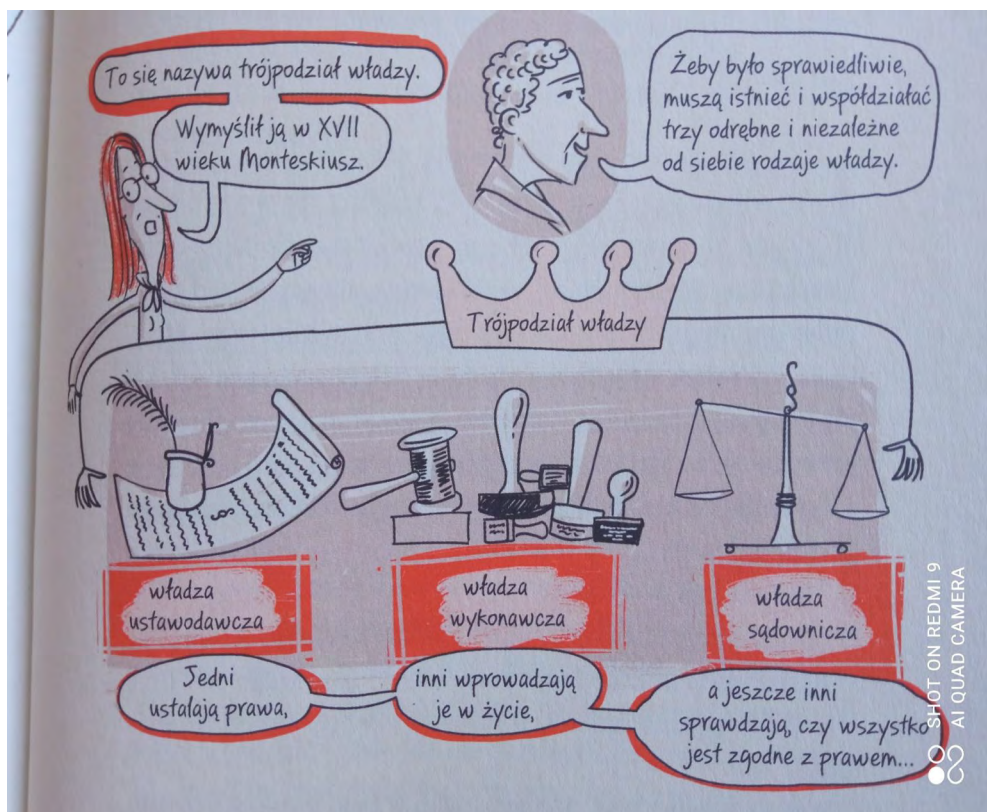 To się nazywa trójpodział władzy.
Wymyślił ją w XVII
wieku Monteskiusz.
Żeby było sprawiedliwie,
muszą istnieć i współdziałać
trzy odrębne i niezależne
od siebie rodzaje władzy.
Trójpodział władzy
władza
ustawodawcza
władza
wykonawcza
władza
sądownicza
Jedni
ustalają prawa,
inni wprowadzają
je w życie,
a jeszcze inni
sprawdzają, czy wszystko
jest zgodne z prawem...
SHOT ON REDMI 9
AI QUAD CAMERA